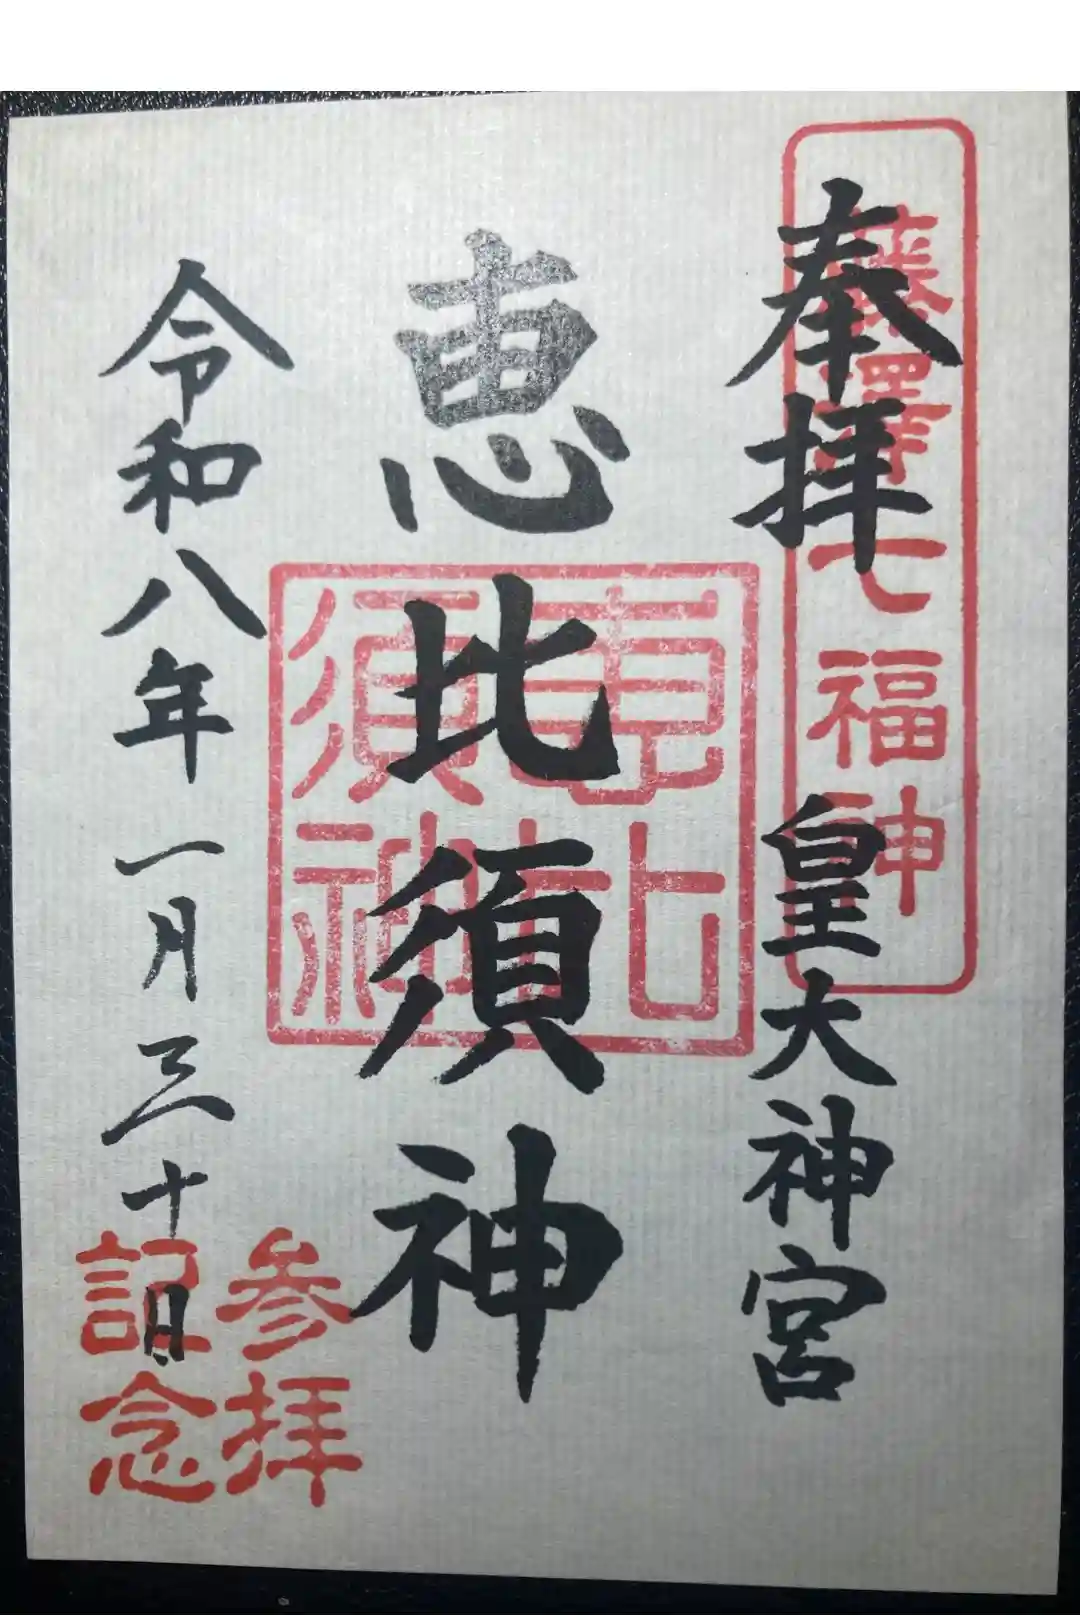 奉拝
藤澤七福神
皇大神宮
恵比須神
恵比
須神
令和八年一月三十日
参拝
記念